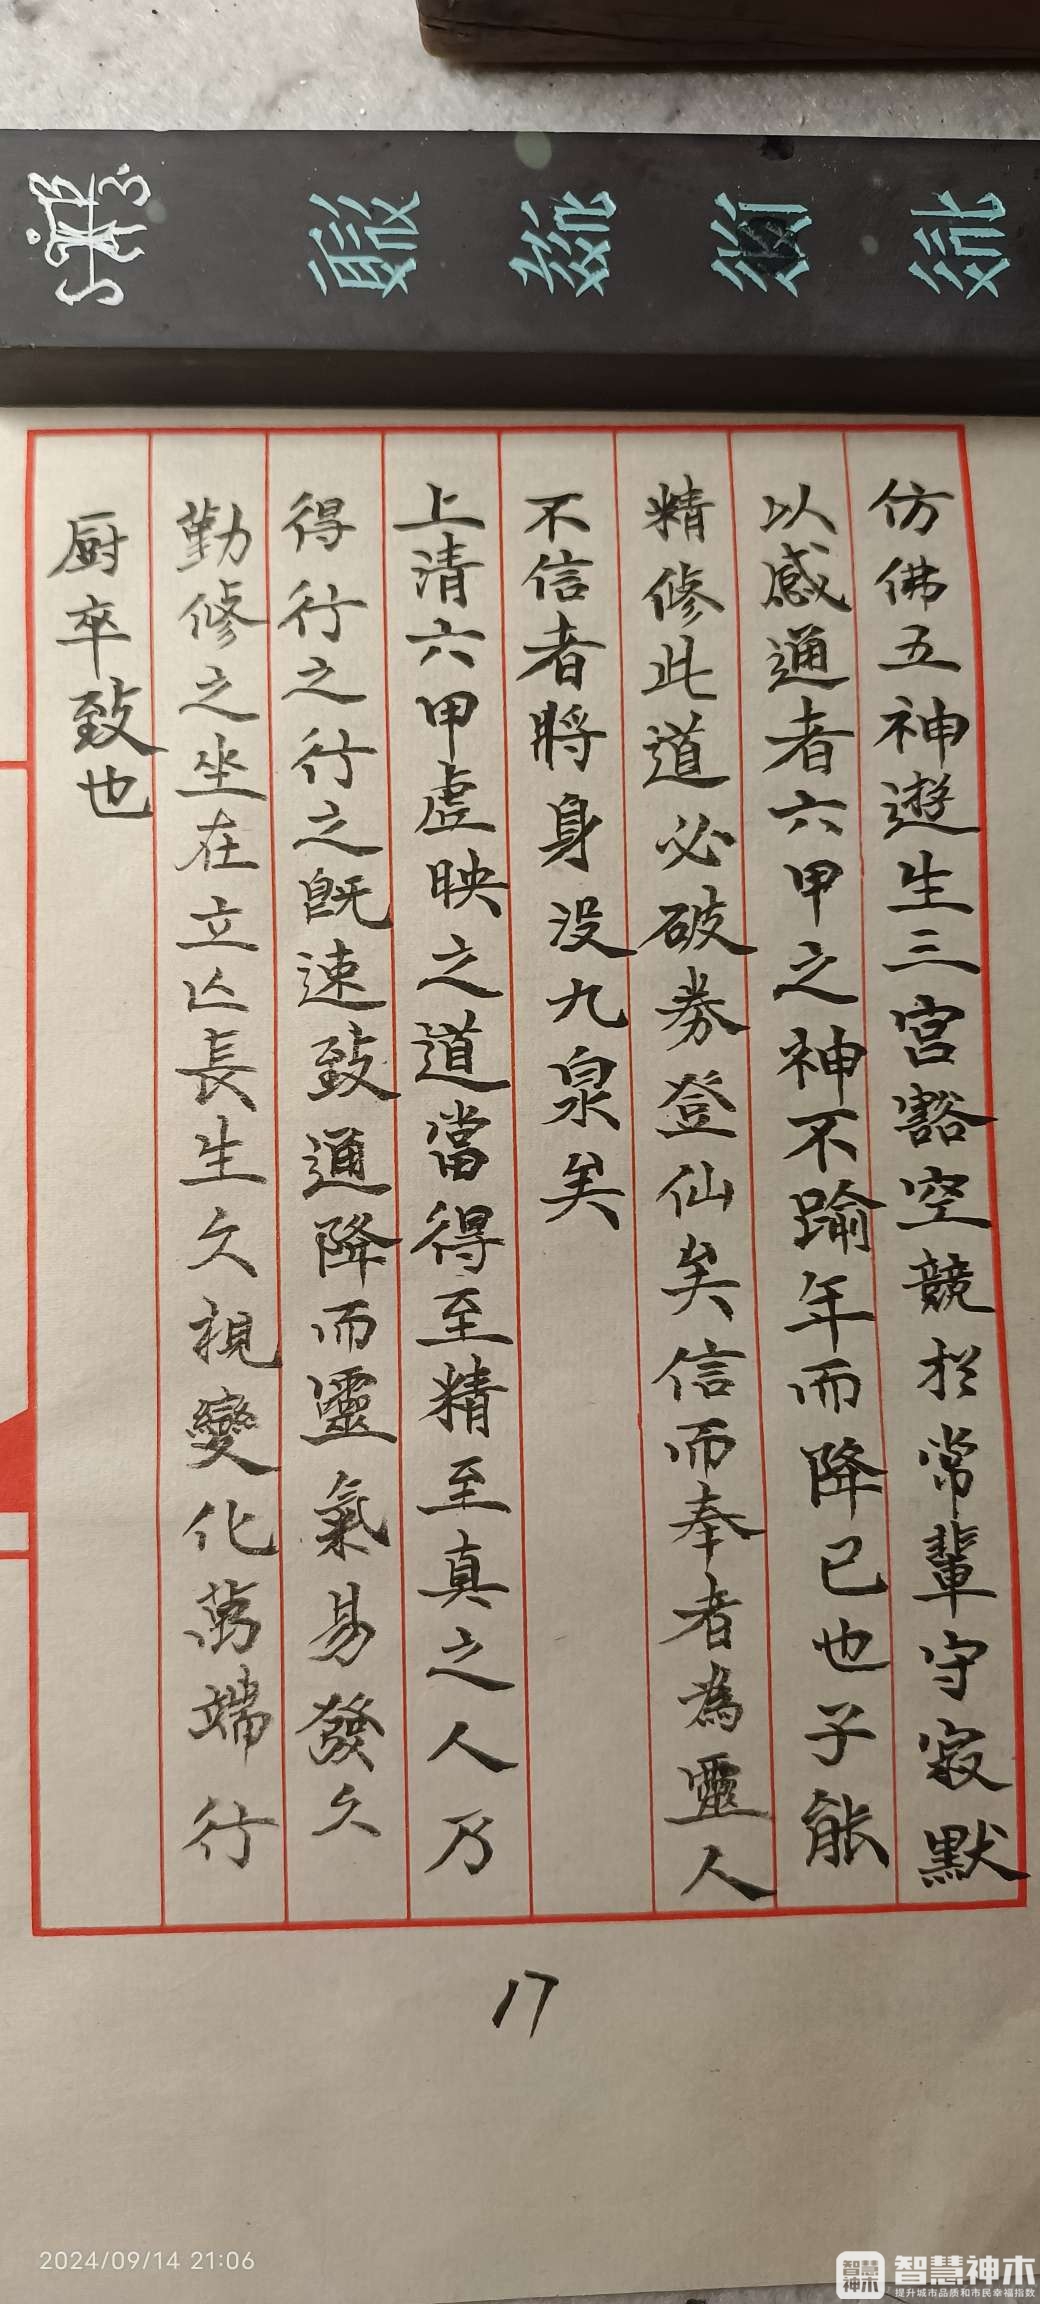 仿佛五神遊生三宫豁空競於常輩守寂默
以感通者六甲之神不踰年而降已也子能
精修此道必破券登仙矣信而奉者為靈人
不信者將身没九泉矣
上清六甲虚映之道當得至精至真之人乃
得行之行之既速致通降而靈氣易發久
勤修之坐在立亡長生久視變化萬端行
厨卒致也
17
2024/09/14 21:06
智慧神木
智慧神木
提升城市品质和市民幸福指数